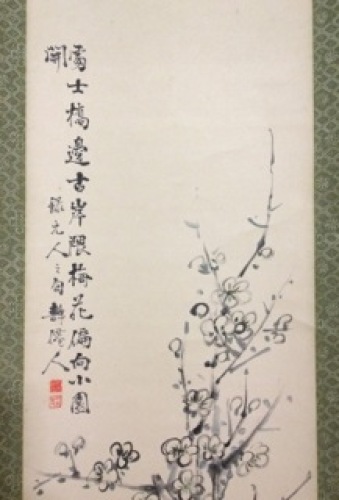 處士橋邊古岸隈梅花偏向小園
開
錄元人之句 人